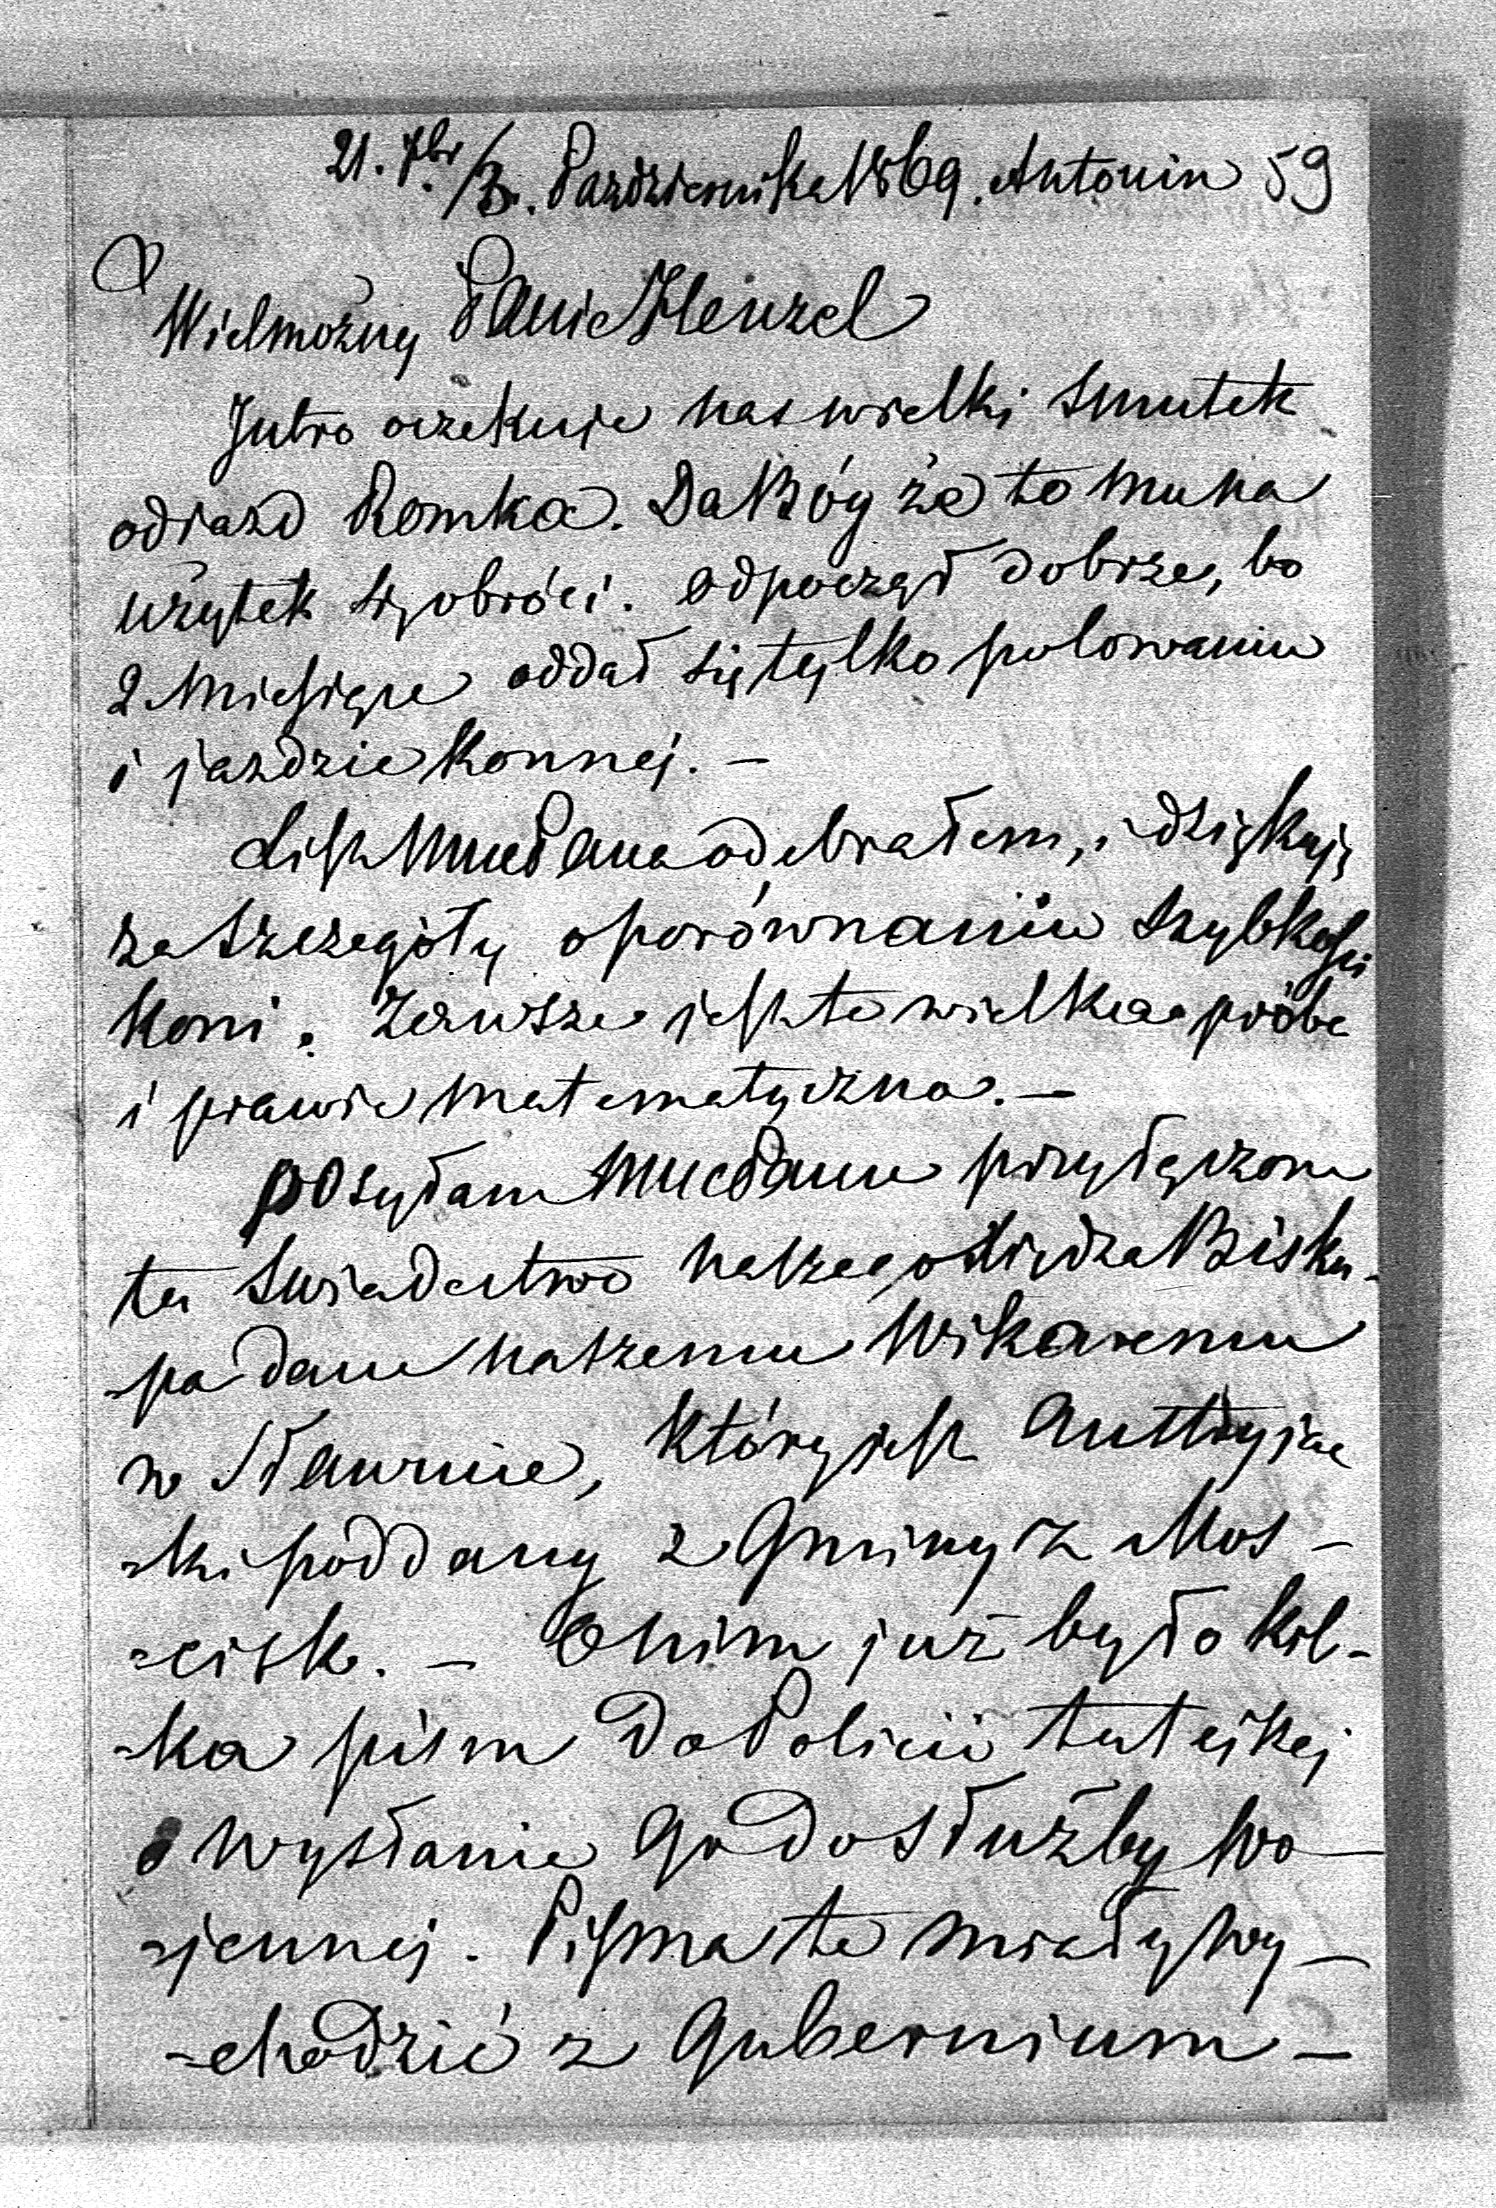 21. 7br/3. Października 1869. Antonin 59
Wielmożny Panie Henzel
Jutro oczekuje nas wielki smutek
odjazd Romka. Da Bóg że to mu na
użytek się obróci. Odpoczął dobrze, bo
2 Miesiące oddał się tylko polowaniu
i jazdzie Konnej. –
List Pana odebrałem, i dziękuję
za szczegóły o porównaniu szybkości
Koni. Zawsze jest to wielka próba
i prawie matematyczna. –
posyłam Panu przyłączone
tu swiadectwo naszego Xiędza Bisku-
-pa dane naszemu Wikaremu
w Sławucie, który jest Austryjac
-ki poddany z Gminy z Mos-
-cisk. – O nim już było kil-
-ka pism do Policii tutejszej
o wysłanie go do służby wo-
-jennej. Pisma te miały wy-
-chodzić z Gubernium –